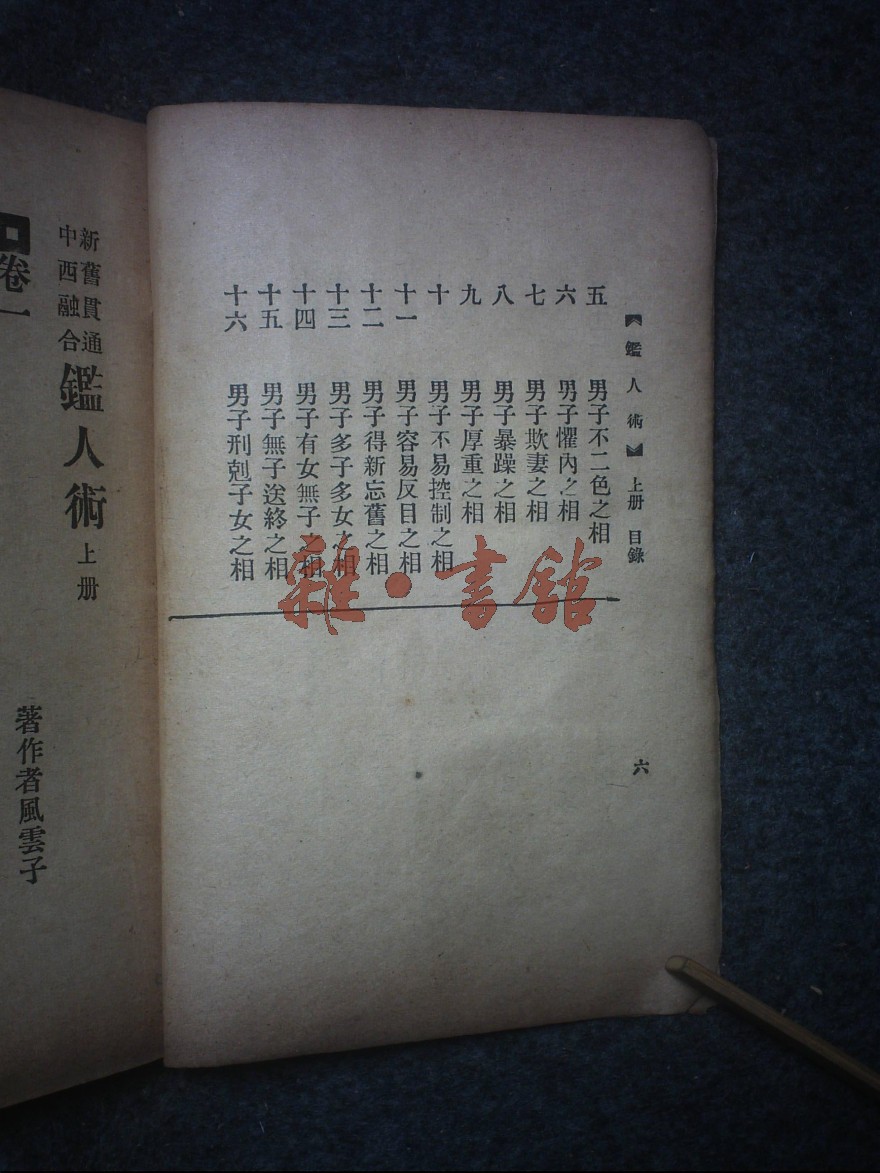 【鑑人術】 上册 目錄 六
五 男子不二色之相
六 男子懼內之相
七 男子欺妻之相
八 男子暴躁之相
九 男子厚重之相
十 男子不易控制之相
十一 男子容易反目之相
十二 男子得新忘舊之相
十三 男子多子多女之相
十四 男子有女無子之相
十五 男子無子送終之相
十六 男子刑剋子女之相
新舊貫通
中西融合
鑑人術 上册
著作者風雲子
卷一
雜·書館